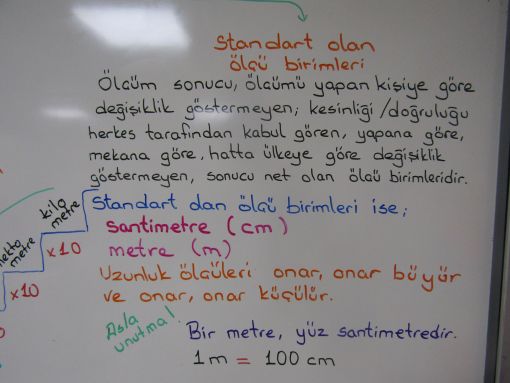 Standart olan
ölçü birimleri
Ölçüm sonucu, ölçümü yapan kişiye göre
değişiklik göstermeyen; kesinliği/doğruluğu
herkes tarafından kabul gören, yapana göre,
mekana göre, hatta ülkeye göre değişiklik
göstermeyen, sonucu net olan ölçü birimleridir.
Standart dan ölçü birimleri ise;
santimetre (cm)
metre (m)
Uzunluk ölçüleri onar, onar büyür
ve onar, onar küçülür.
Asla
unutma!
Bir metre, yüz santimetredir.
1m = 100 cm
kilo
metre
x10
metre
x10